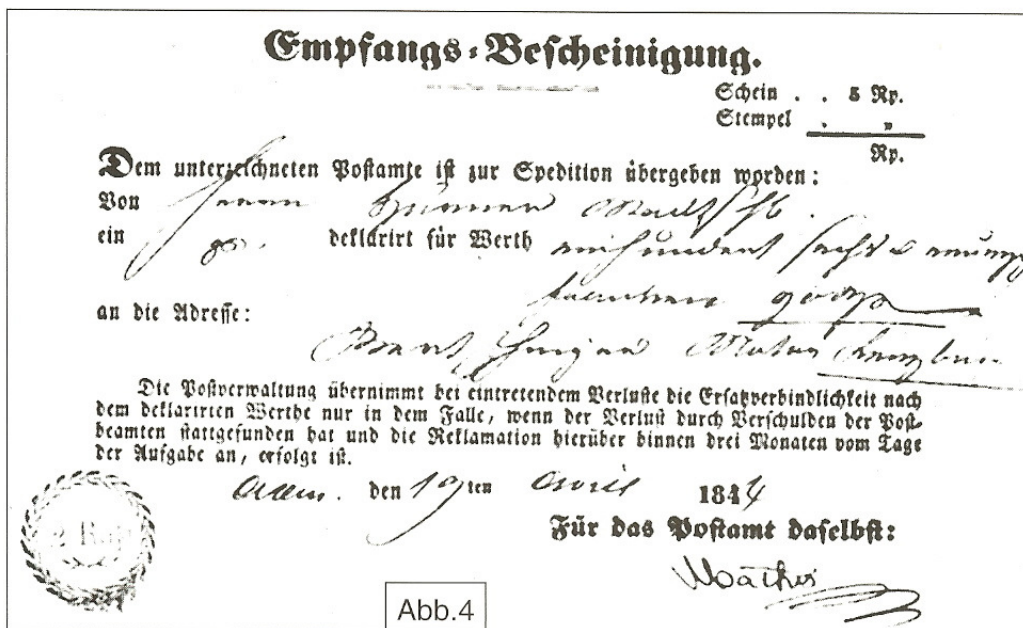 Empfangs-Bescheinigung.
Schein . . 5 Rp.
Stempel . „
Rp.
Dem unterzeichneten Postamte ist zur Spedition übergeben worden:
Von Herrn
ein deklarirt für Werth einhundert sechs &
an die Adresse:
Die Postverwaltung übernimmt bei eintretendem Verluste die Ersatzverbindlichkeit nach
dem deklarirten Werthe nur in dem Falle, wenn der Verlust durch Verschulden der Post-
beamten stattgefunden hat und die Reklamation hierüber binnen drei Monaten vom Tage
der Aufgabe an, erfolgt ist.
den 19ten April 1844
Für das Postamt daselbst:
2 Rap
Abb.4